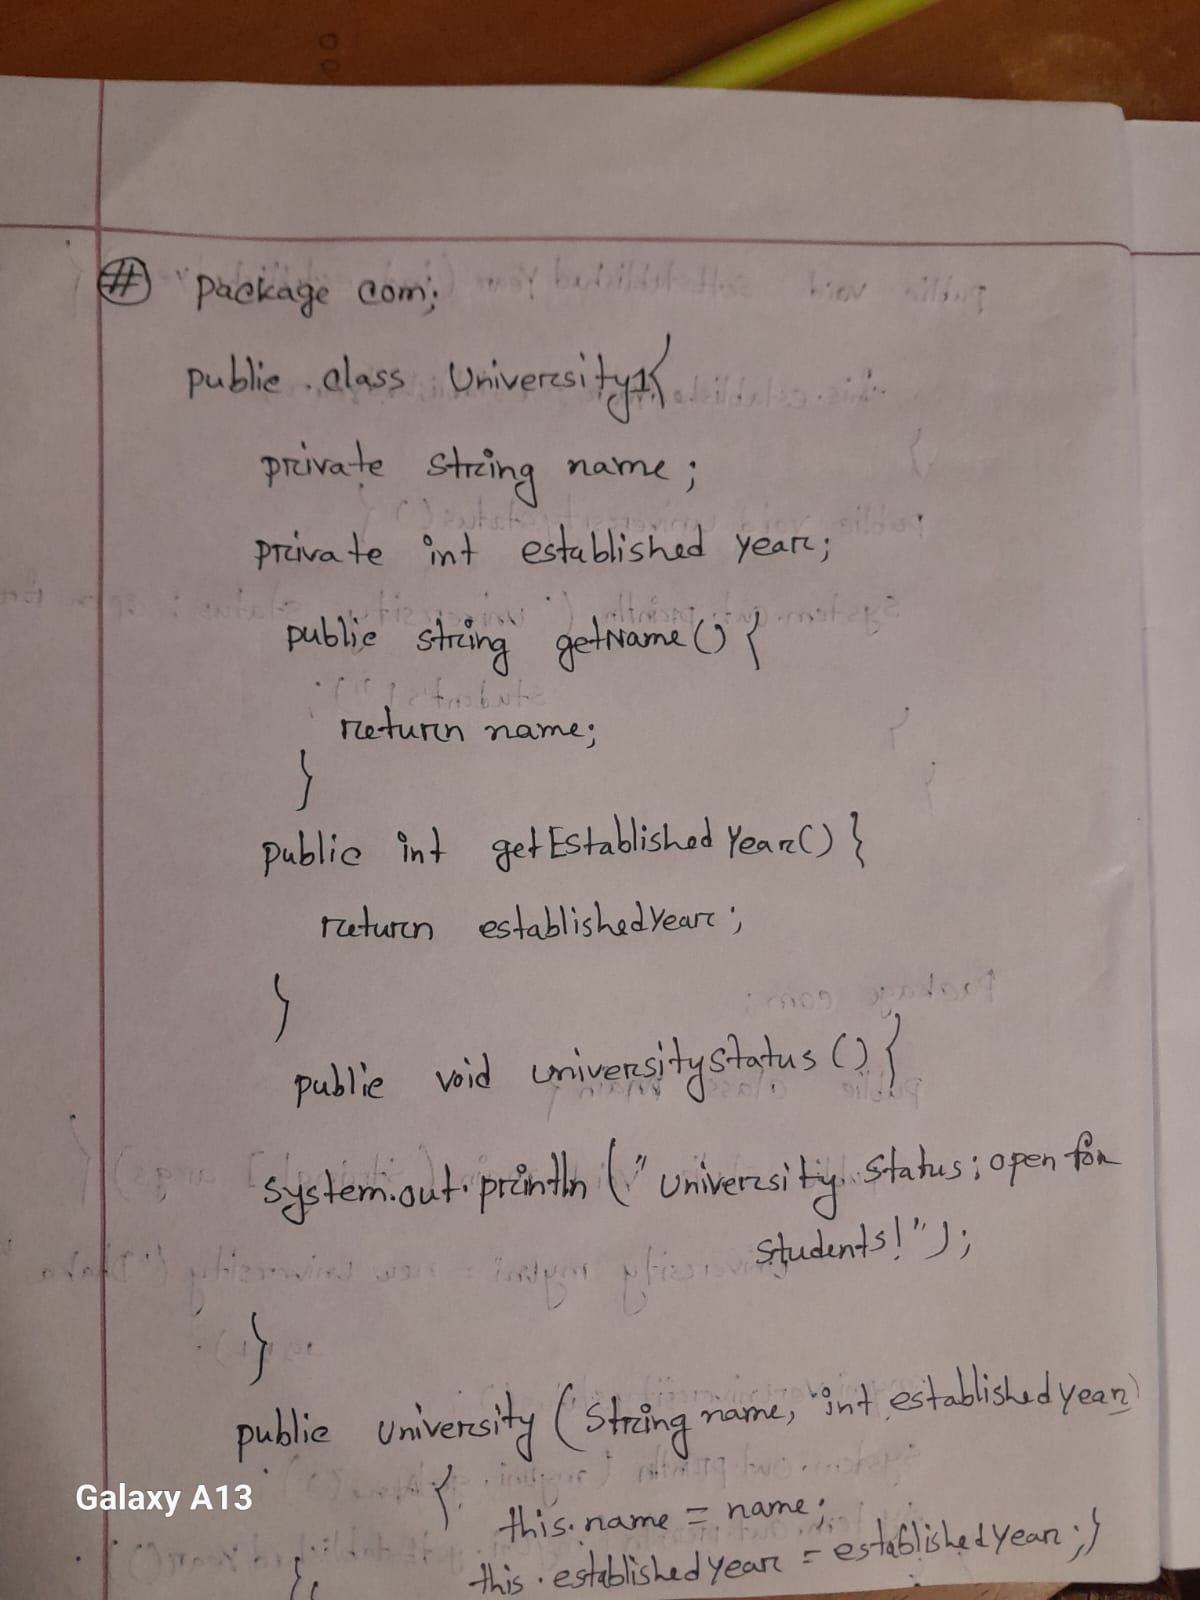 # package com;
public class University1{
private string name;
private int established year;
public string getName() {
return name;
}
public int getEstablished Year() {
return establishedYear;
}
public void universitystatus () {
system.out.println ("University status; open for
students!");
}
public University (String name, int establishedyear)
{ this.name = name;
this.establishedyear = establishedyear;}
}
Galaxy A13